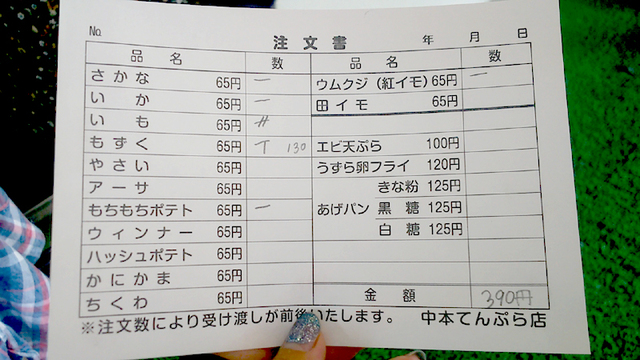 No.
注文書 年 月 日
品名 数 品名 数
さかな 65円 一 ウムクジ(紅イモ)65円 一
いか 65円 一 田イモ 65円
いも 65円
もずく 65円 T 130 エビ天ぷら 100円
やさい 65円 うずら卵フライ 120円
アーサ 65円 きな粉 125円
もちもちポテト 65円 一 あげパン 黒糖 125円
ウィンナー 65円 白糖 125円
ハッシュポテト 65円
かにかま 65円
ちくわ 65円 金額 390円
※注文数により受け渡しが前後いたします。 中本てんぷら店